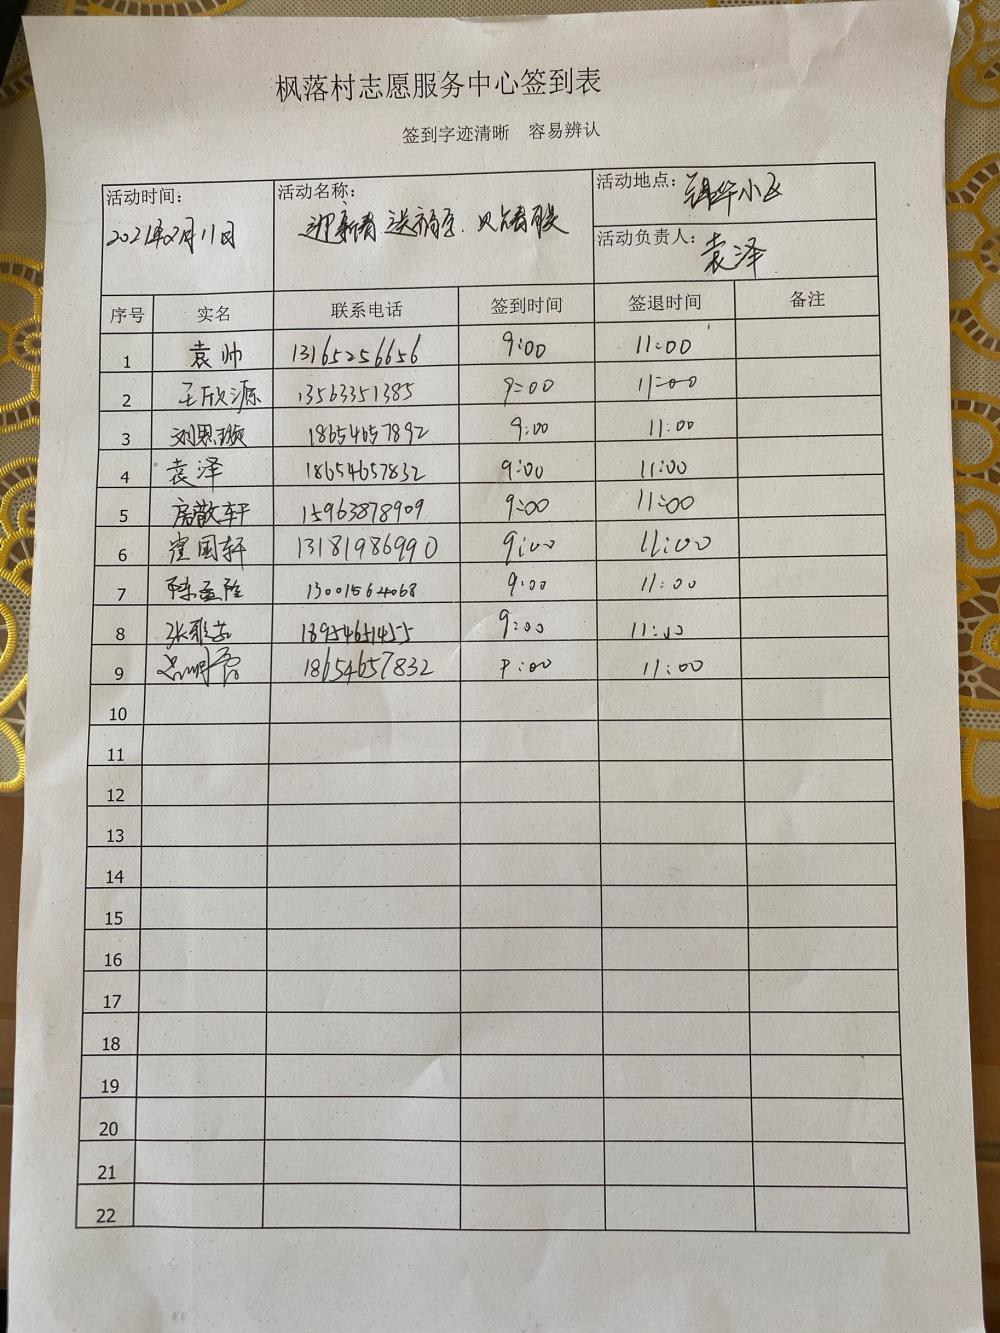 枫落村志愿服务中心签到表
签到字迹清晰 容易辨认
活动时间: 活动名称: 活动地点: 锦华小区
2021年02月11日 迎新春 送福字、贴春联
活动负责人: 袁泽
序号 实名 联系电话 签到时间 签退时间 备注
1 袁帅 13165256656 9:00 11:00
2 王欣源 13563351385 9:00 11:00
3 刘思璇 18654657892 9:00 11:00
4 袁泽 18654657832 9:00 11:00
5 房敬轩 15963878909 9:00 11:00
6 崔国轩 13181986990 9:00 11:00
7 13001564068 9:00 11:00
8 18954651455 9:00 11:00
9 18654657832 9:00 11:00
10
11
12
13
14
15
16
17
18
19
20
21
22